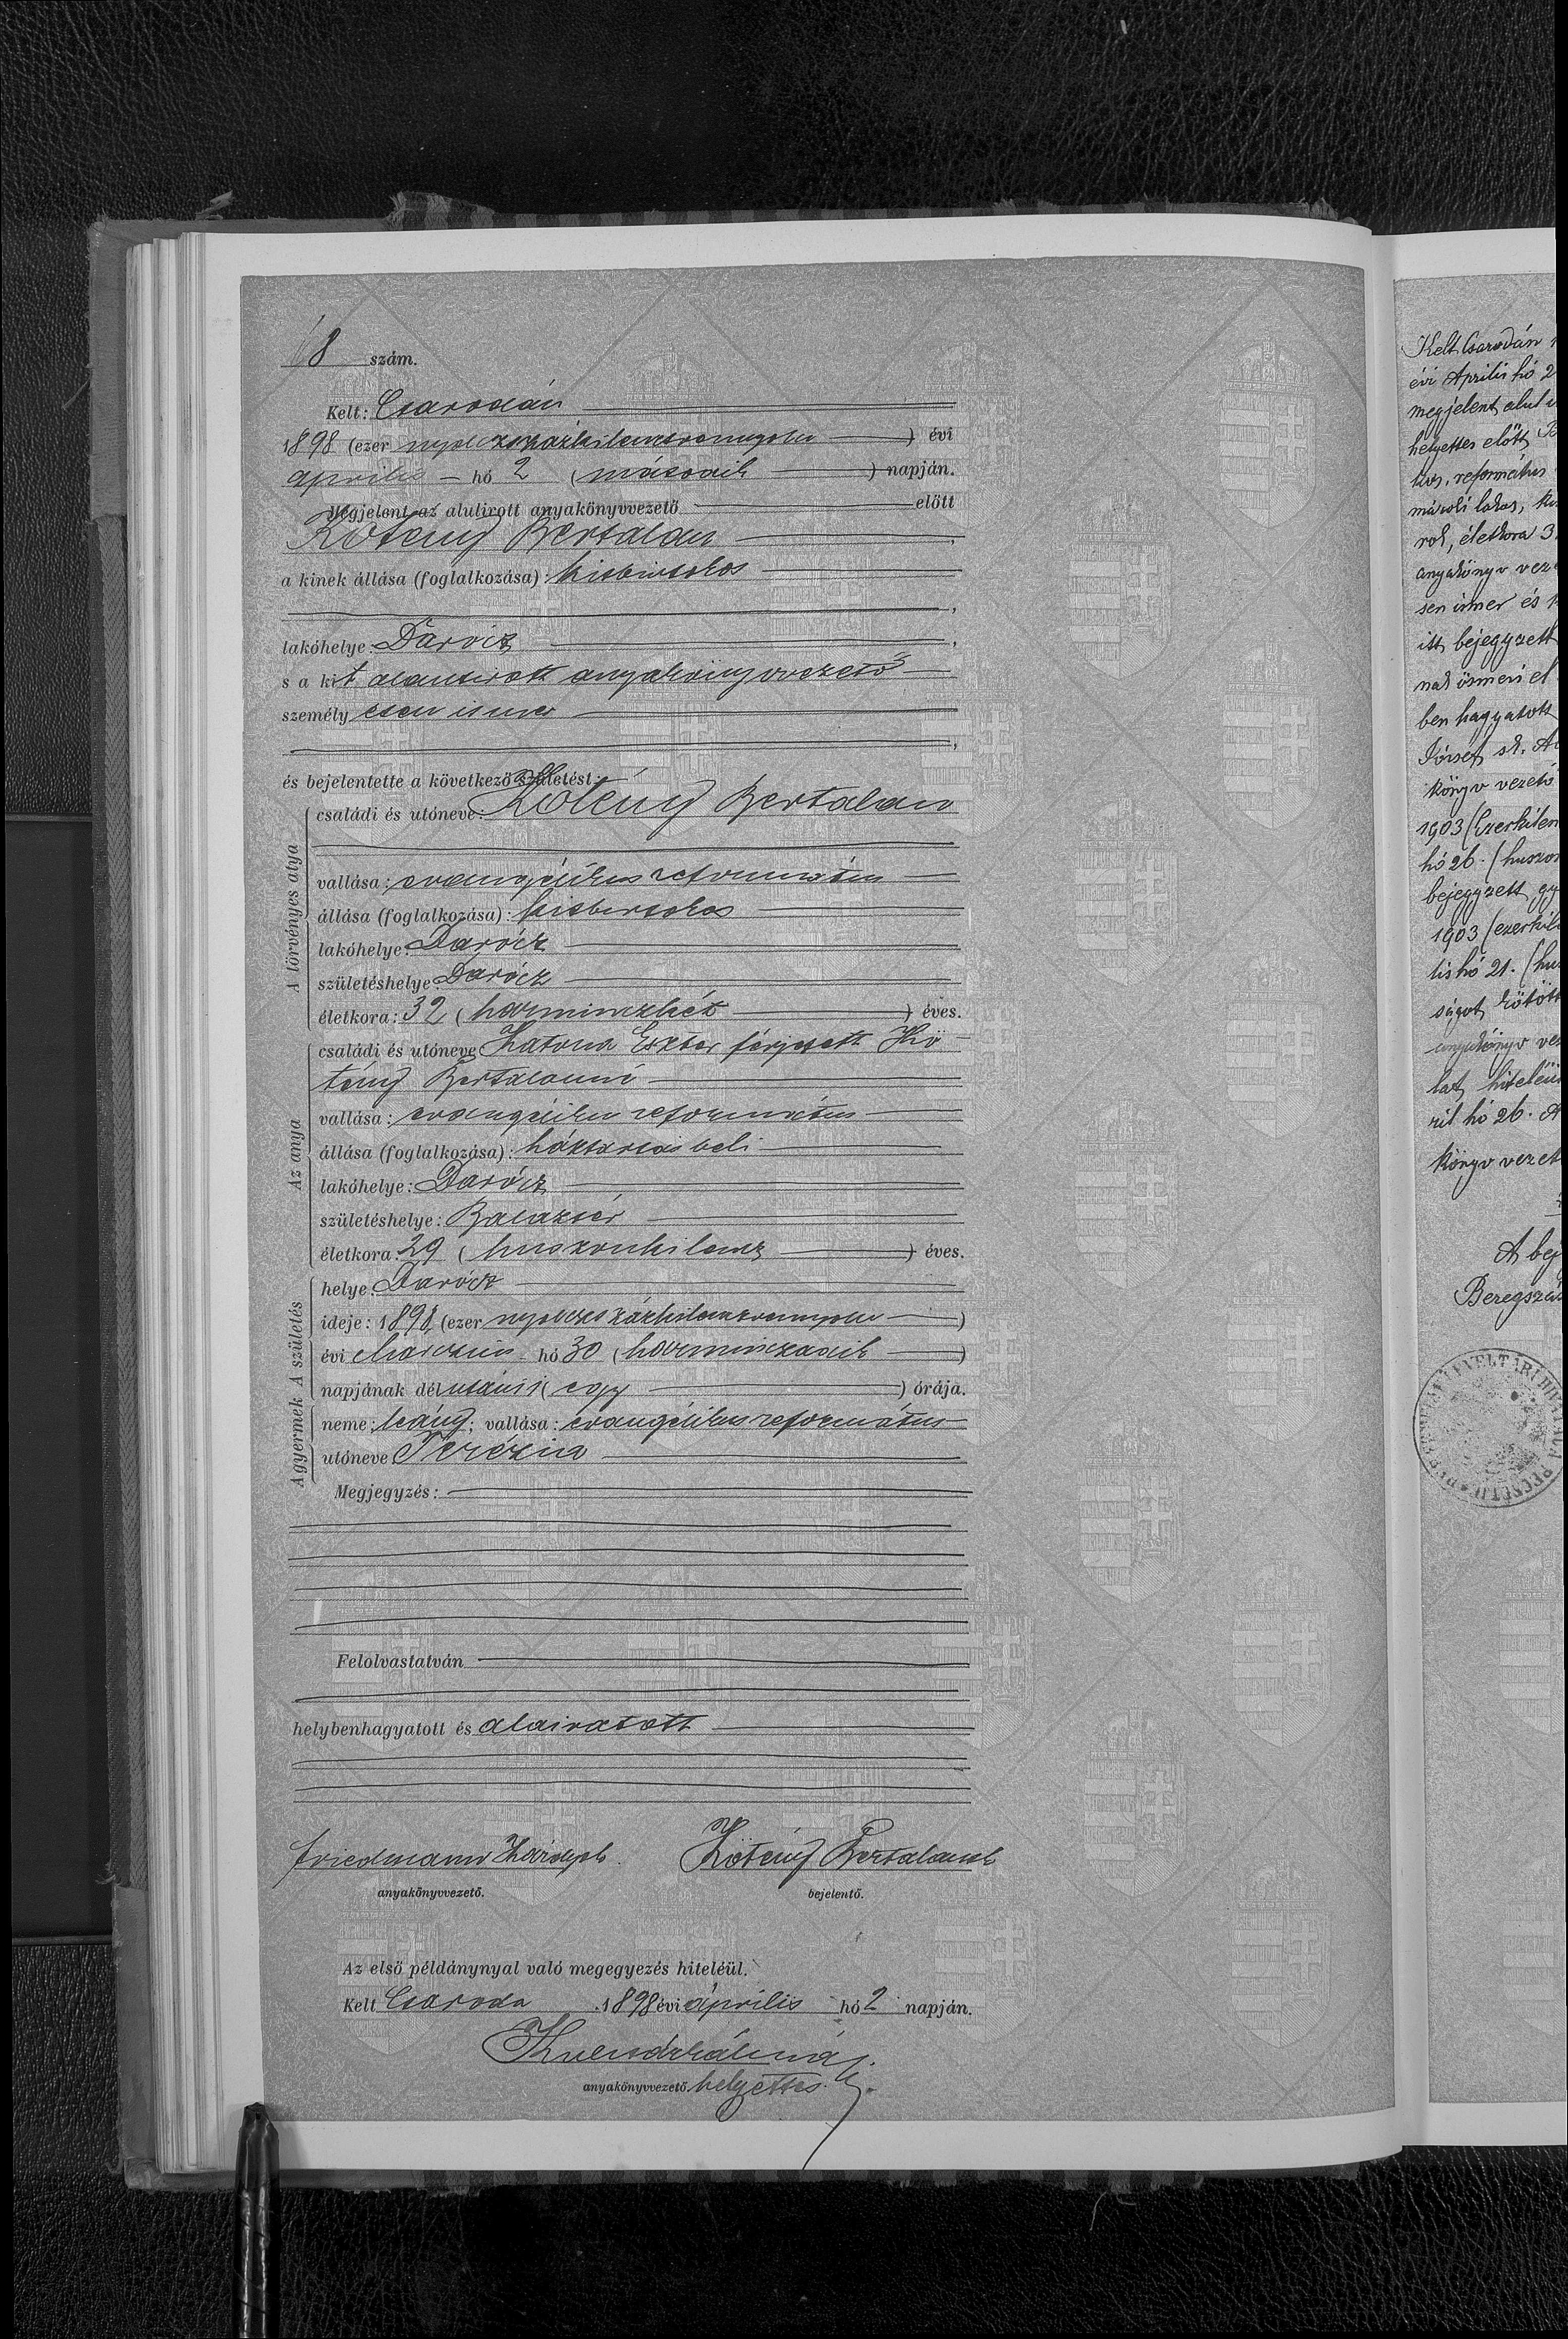 68 szám.
Kelt: Csarodán
1898 (ezer nyolczszázkilenczvennyolcz) évi
április hó 2 (második) napján.
Megjelent az alulirott anyakönyvvezető előtt
Kötény Bertalan,
a kinek állása (foglalkozása): kisbirtokos
,
lakóhelye: Darócz,
s a kit alantirott anyakönyvvezető
személyesen ismer
,
és bejelentette a következő születést:
A törvényes atya
családi és utóneve: Kötény Bertalan
vallása: evangélikus református
állása (foglalkozása): kisbirtokos
lakóhelye: Darócz
születéshelye: Darócz
életkora: 32 (harminczkét) éves.
Az anya
családi és utóneve Katona Eszter férjezett Kö-
tény Bertalanné
vallása: evangélikus református
állása (foglalkozása): háztartásbeli
lakóhelye: Darócz
születéshelye: Balazsér
életkora: 29 (huszonkilencz) éves.
A születés
helye: Darócz
ideje: 1898, (ezer nyolczszázkilenczvennyolcz)
évi márczius hó 30 (harminczadik)
napjának délutáni 1 (egy) órája.
A gyermek
neme: leány; vallása: evangélikus református
utóneve: Terézia
Megjegyzés:
Felolvastatván
helybenhagyatott és aláiratott
Friedmann
anyakönyvvezető.
Kötény Bertalan
bejelentő.
Az első példánynyal való megegyezés hiteléül.
Kelt Csaroda 1898 évi április hó 2 napján.
anyakönyvvezető helyettes.
Kelt Csarodán
évi Április hó 2
megjelent alul
helyettes előtt
kus, református
mároki lakos,
rok, életkora 3
anyakönyv veze
sen ismer és
itt bejegyzett
nak ösmeri el
ben hagyatott
József sk.
könyv vezető
1903 (Ezerkilen
hó 26. (huszon
bejegyzett gy
1903 (ezerkil
lis hó 21. (hu
ságot kötött
anyakönyv ve
lat hiteléül
ril hó 26. A
könyv vezet
A bej
Beregszá